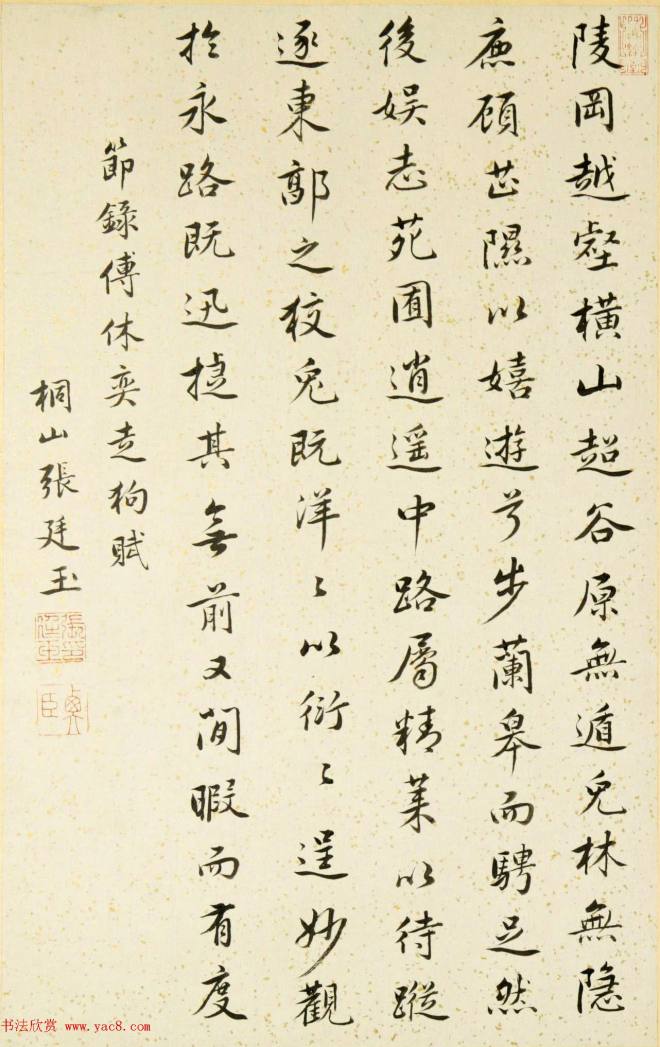 陵岡越壑橫山超谷原無遁兎林無隱
麃顧芷隰以嬉遊兮步蘭皋而騁足然
後娱志苑囿逍遥中路屬精萊以待蹤
逐東郭之狡兎既洋〻以衍〻逞妙觀
扵永路既迅捷其無前又閒暇而有度
節錄傅休奕走狗賦
桐山張廷玉
張廷玉
臣
书法欣赏 www.yac8.com